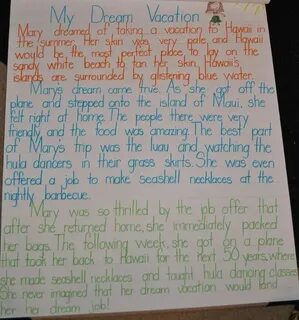 My Dream Vacation
Mary dreamed of taking a vacation to Hawaii in
the summer. Her skin was very pale, and Hawaii
would be the most perfect place to lay on the
sandy white beach to tan her skin. Hawaii's
islands are surrounded by glistening blue water.
Mary's dream came true. As she got off the
plane and stepped onto the island of Maui, she
felt right at home. The people there were very
friendly and the food was amazing. The best part
of Mary's trip was the luau and watching the
hula dancers in their grass skirts. She was even
offered a job to make seashell necklaces at the
nightly barbecue.
Mary was so thrilled by the job offer that
after she returned home, she immediately packed
her bags. The following week, she got on a plane
that took her back to Hawaii for the next 50 years, where
she made seashell necklaces and taught hula dancing classes.
She never imagined that her dream vacation would land
her her dream job!